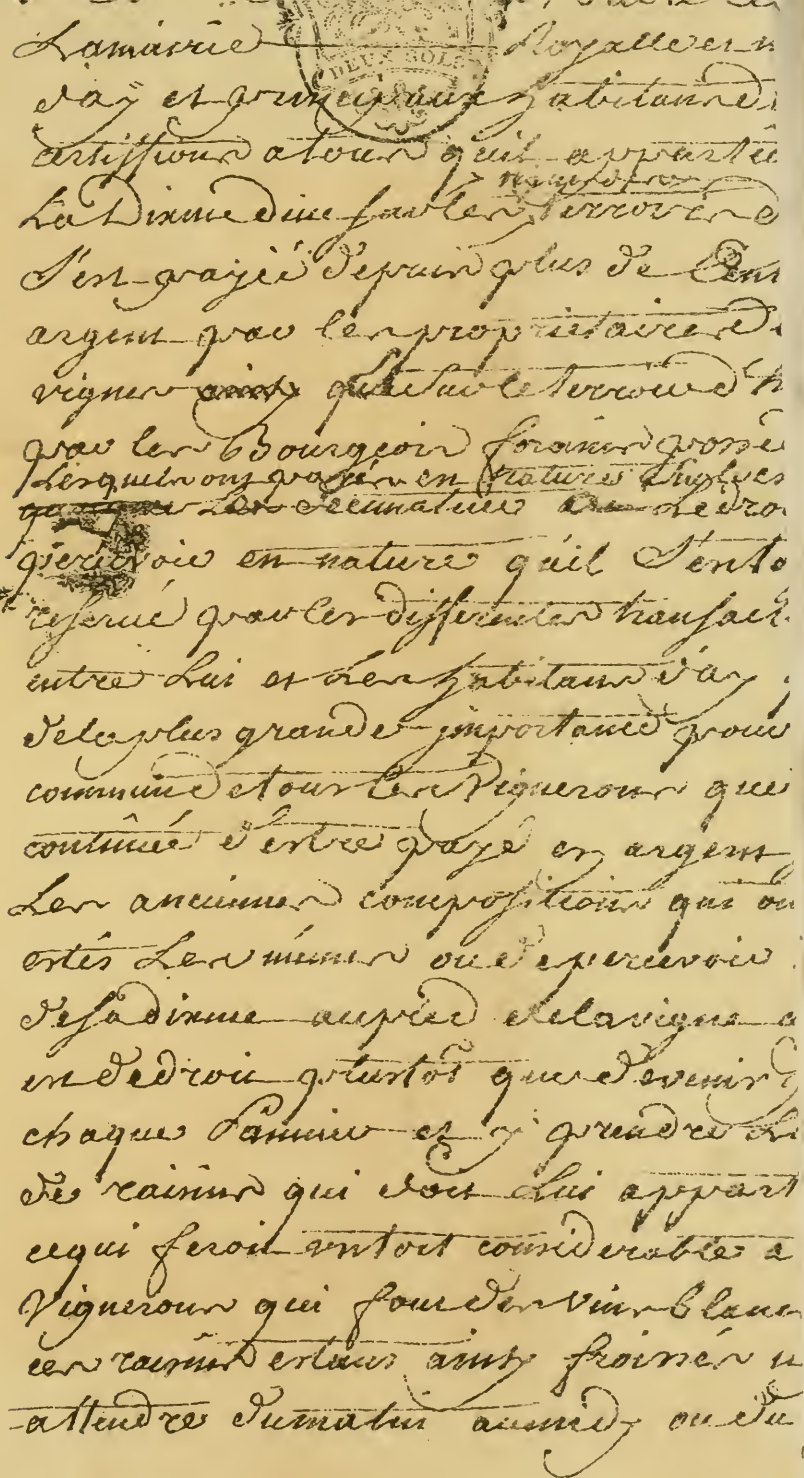 Lamairie Royalle et n
DEUX SOLS
d'ay et principaux habitans d
certiffions a tous quil apparti
La Dixme due sur les terroirs d
S'est payée depuis plus de Cent
argent par les proprietaires d
vignes ainsy que sur le terroir d'h
par les Bourgeois forains possé
Lesquels ont payés en nature
percevoir en nature quil S'est
reservé par les differentes transact
entre Lui et Les habitans d'ay
dela plus grande importance pour
commune et tous Les Vignerons que
continué d'estre payé en argent
Les anciennes compositions qui on
estés Les mêmes ou de percevoir
de sa dixme au pied de la vigne
en dedroit plustost que de venir
chaque Pannier et y prendre L
de raisins qui doit Lui appart
ce qui feroit un tort considerable a
Vignerons qui font des vins blanc
ces raisins estans ainsy froissés
attendre du matin au midy ou du